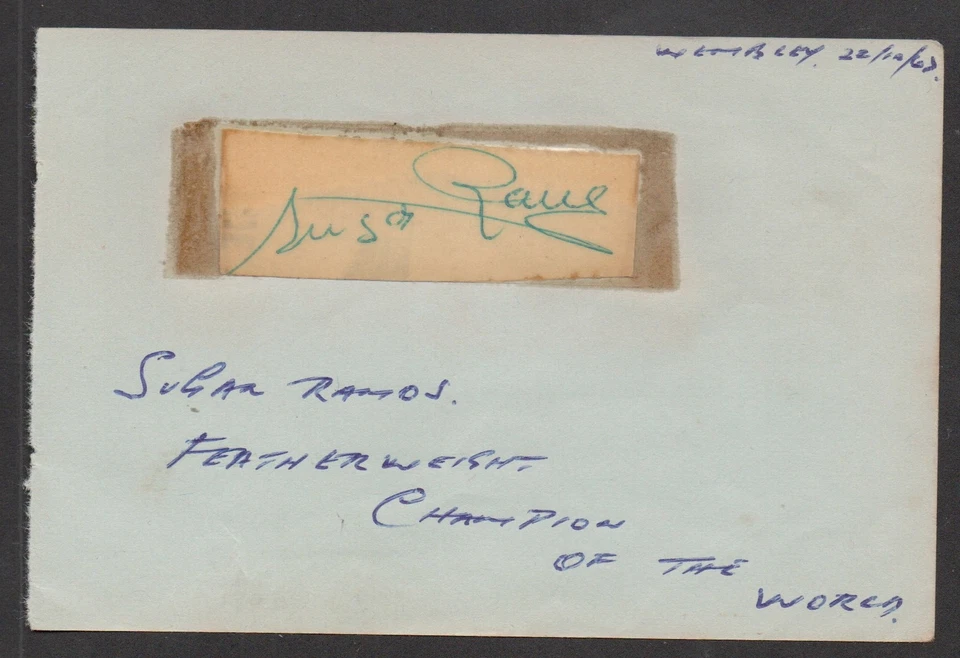 WEMBLEY. 22/10/63.
SUGAR RAMOS.
FEATHERWEIGHT
CHAMPION
OF THE
WORLD.